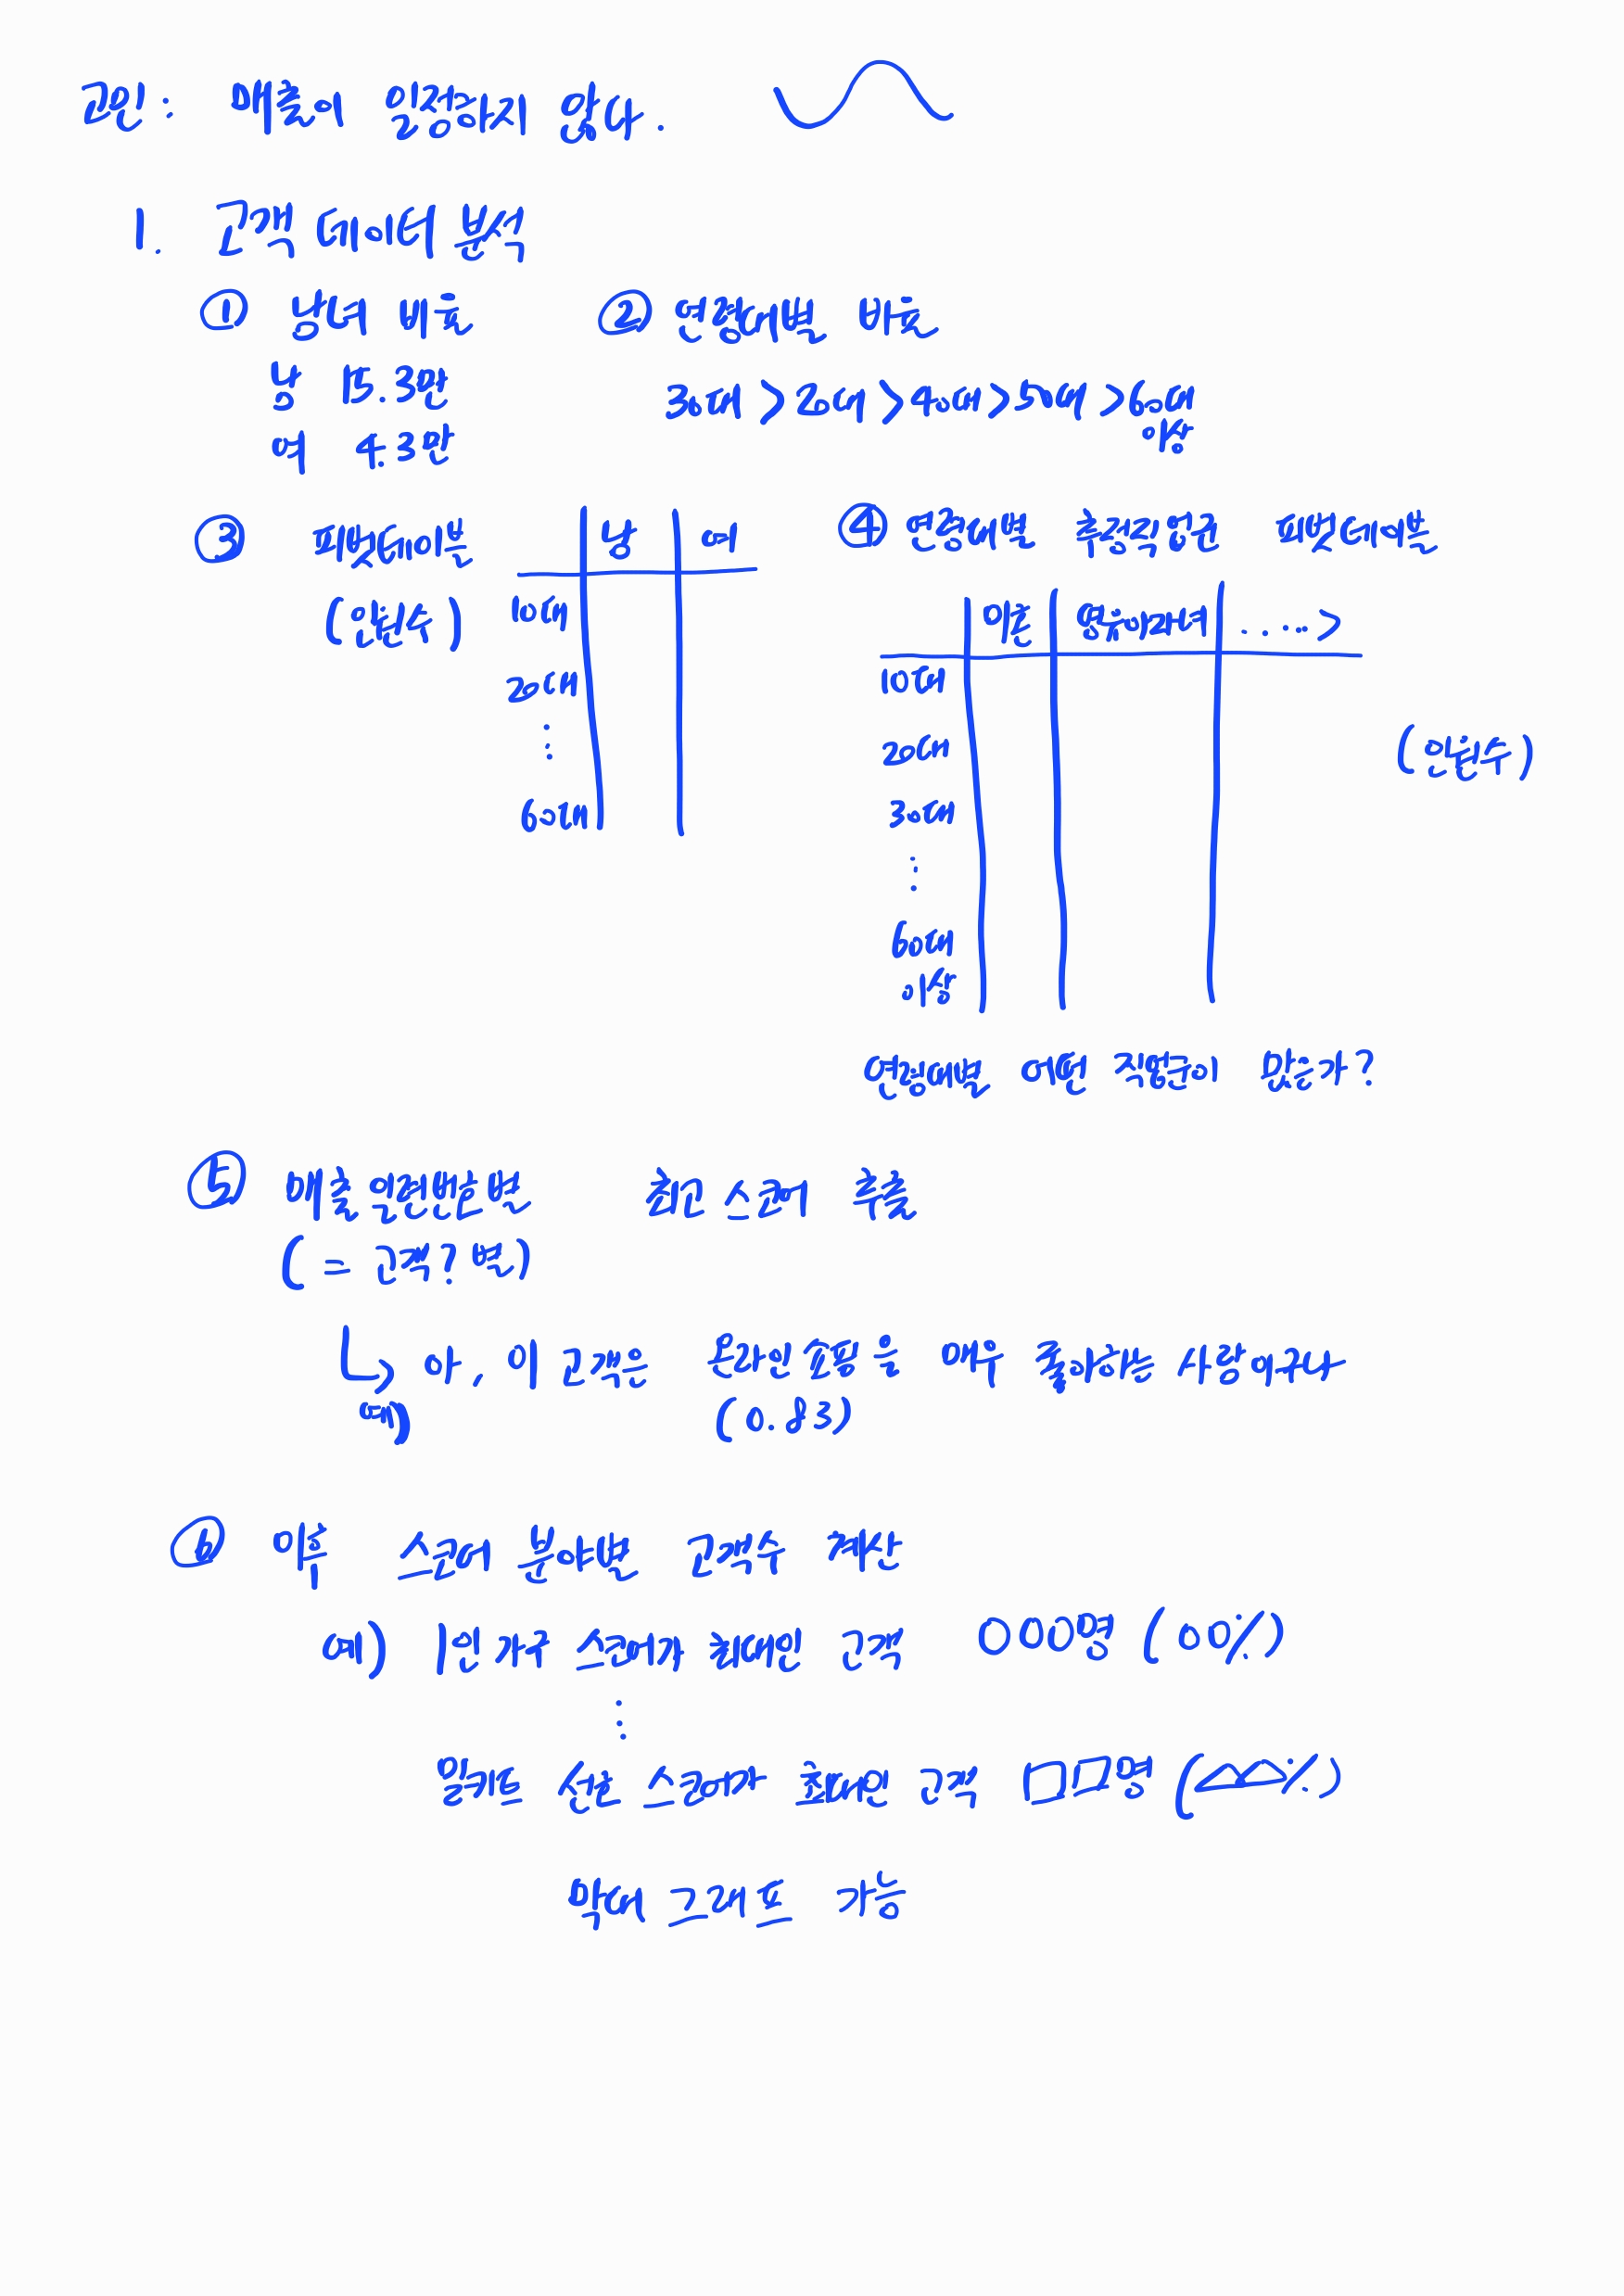 고민 : 매출이 일정하지 않다.
1. 고객 데이터 분석
① 남녀 비율
남 15.3만
여 4.3만
② 연령대별 비율
30대 > 20대 > 40대 > 50대 > 60대
이상
③ 피벗테이블
(인원수)
남 여
10대
20대
⋮
60대
④ 연령대별 추정직업군 피벗테이블
미혼 영유아자녀 ·····>
10대
20대
30대
⋮
60대
이상
(인원수)
연령대별 어떤 직업군이 많은가?
⑤ 매출일련번호별 최고 스코어 추출
( = 고객? 별)
↳ 아, 이 고객은 온라인 쇼핑을 매우 좋아하는 사람이구나
예) (0.83)
⑥ 이후 스코어 분야별 고객수 계산
예) 1인 가구 스코어가 최대인 고객 000명 (00%)
⋮
밀키트 선호 스코어가 최대인 고객 □□명 (△△%)
막대 그래프 가능